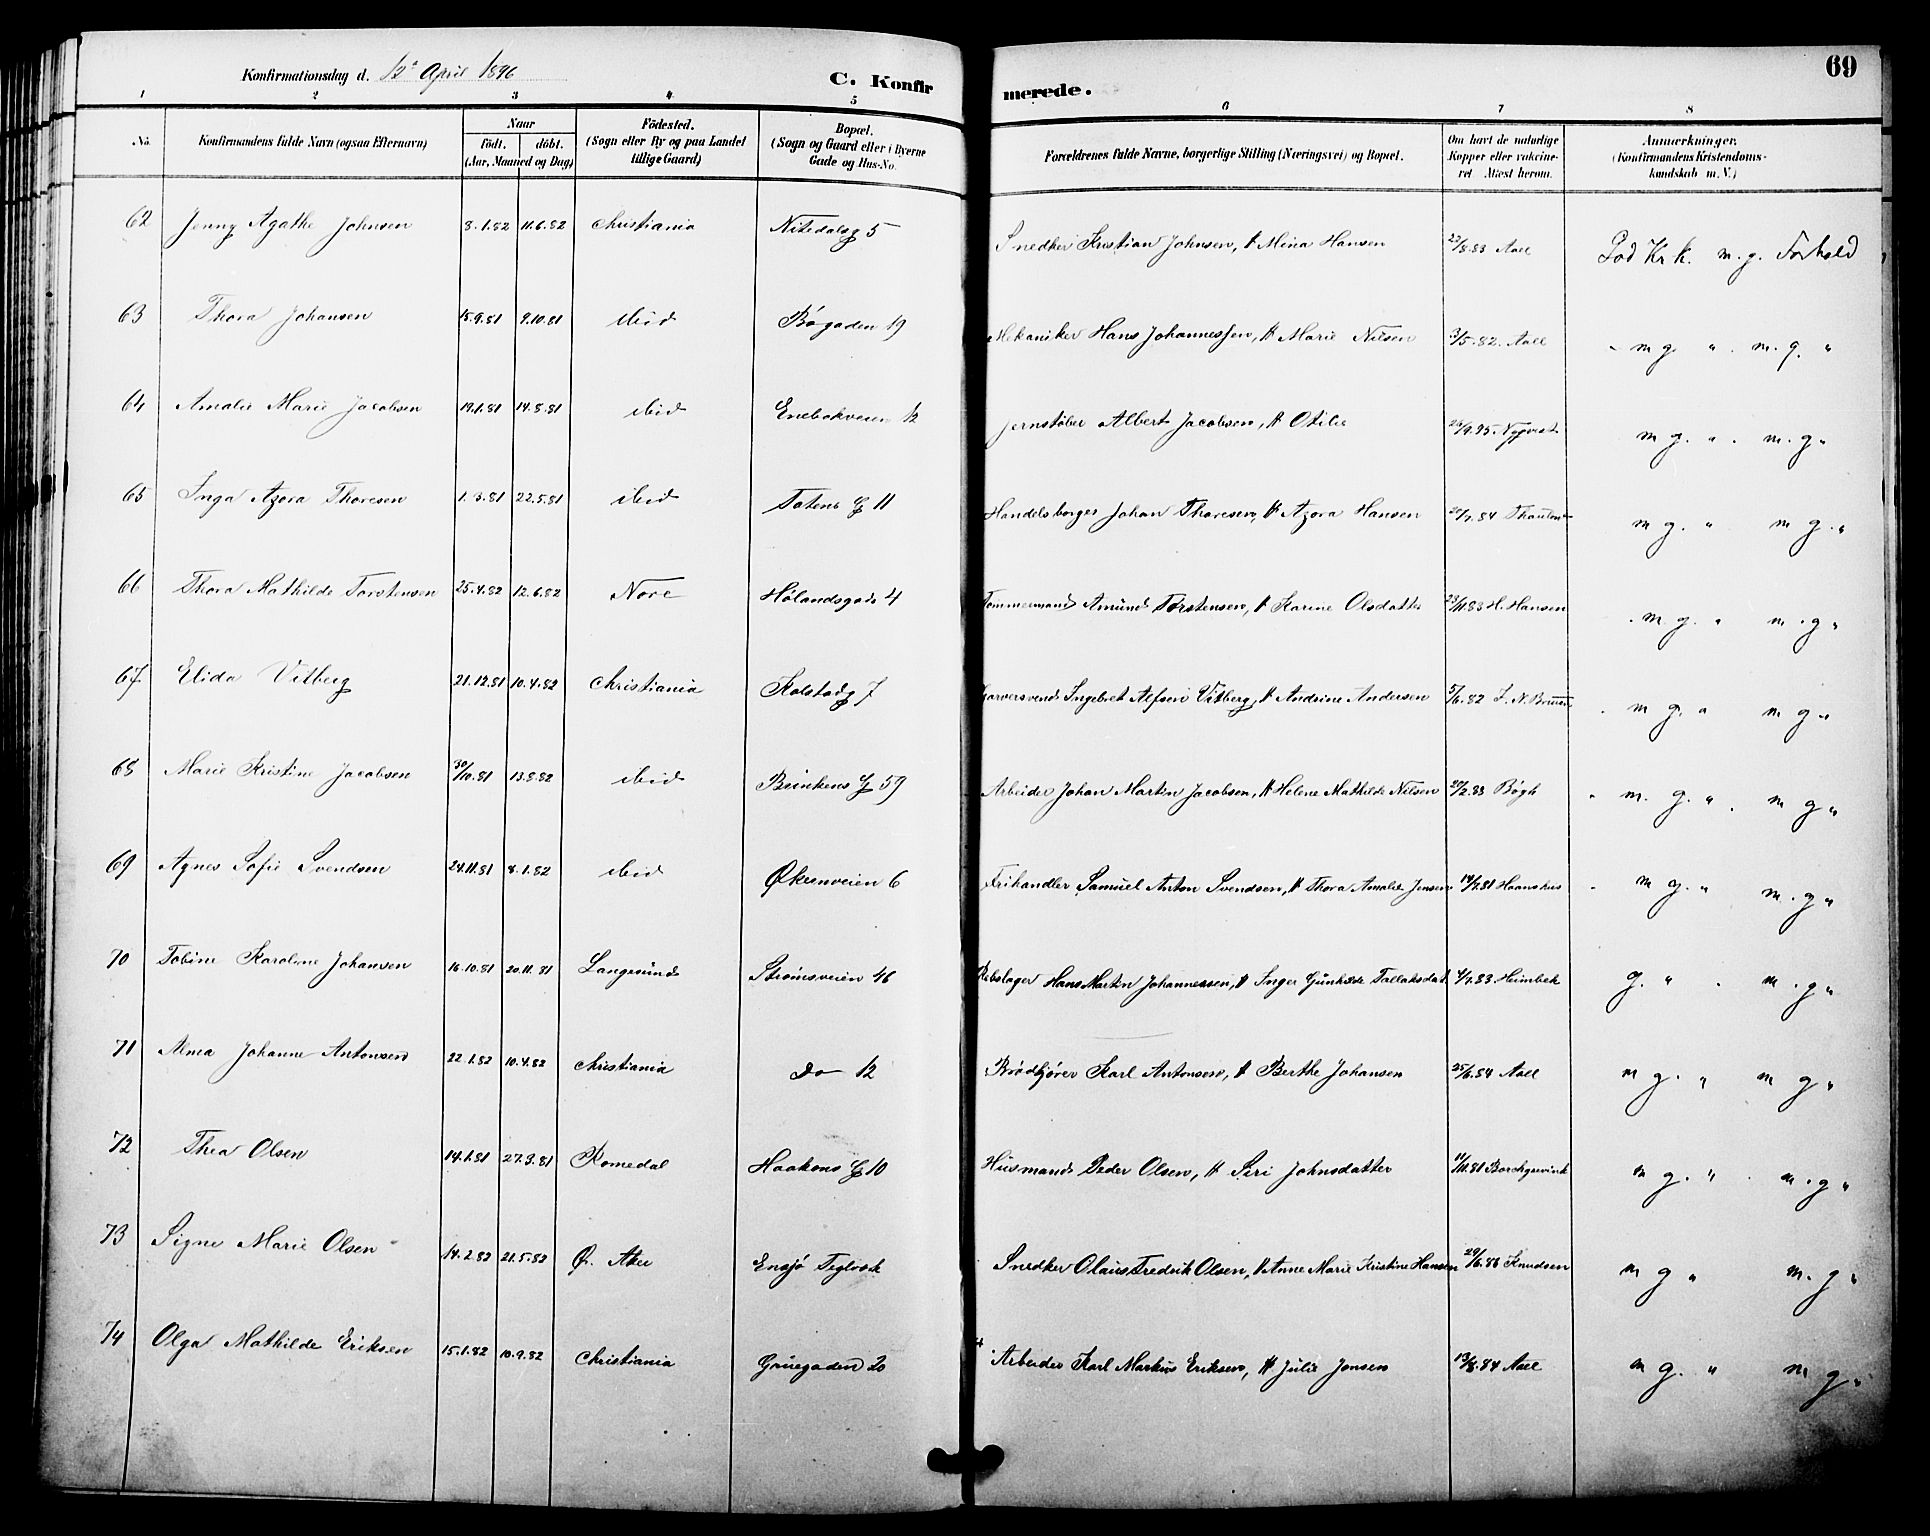 Konfirmationsdag d. 12te April 1896
C. Konfirmerede.
69
1 2 3 4 5 6 7 8
No. Konfirmandens fulde Navn (ogsaa Efternavn) Naar født. døbt. (Aar, Maaned og Dag) Fødested. (Sogn eller By og paa Landet tillige Gaard) Bopæl. (Sogn og Gaard eller i Byerne Gade og Hus-No. Forældrenes fulde Navne, borgerlige Stilling (Næringsvei) og Bopæl. Om havt de naturlige Kopper eller vakcineret Attest herom. Anmærkninger. (Konfirmandens Kristendomskundskab m. V.)
62 Jenny Agathe Johnsen 8.1.82 11.6.82 Christiania Nitedalsg 5 Snedker Kristian Johnsen, H Mina Hansen 22/8.83 Aall God Kr k. m. g. Forhold
63 Thora Johansen 15.9.81 9.10.81 ibid Bøgaden 19 Mekaniker Hans Johannessen, H Marie Nilsen 3/5.82. Aall m g. " m. g. "
64 Amalie Marie Jacobsen 19.1.81 14.8.81 ibid Enebakveien 12 Jernstøber Albert Jacobsen, H Otilie 9.95. m g. " m. g "
65 Inga Azora Thoresen 1.3.81 22.5.81 ibid Totens G 11 Handelsborger Johan Thoresen, H Azora Hansen 84 m g. " m g. "
66 Thora Mathilde Torstensen 25.4.82 12.6.82 Nore Hølandsgade 4 Tømmermand Amund Torstensen, H Karine Olsdatter 23/11.83 H. Hansen m. g. " m. g "
67 Elida Vitberg 21.12.81 10.4.82 Christiania Kolstadg 7 Garversvend Ingebret Alfsen Vitberg, H Andrine Andersen 5/6.82 m g. " m g "
68 Marie Kristine Jacobsen 30/10.81 13.8.82 ibid Brinkens G 59 Arbeider Johan Martin Jacobsen, H Helene Mathilde Nilsen 20/2.83 Bøgh " m. g. " m g "
69 Agnes Sofie Svendsen 24.11.81 8.1.82 ibid Økernveien 6 Frihandler Samuel Anton Svendsen, H Thora Amalie Jensen 14/7.81 Haanshus m g. " m. g "
70 Tobine Karoline Johansen 16.10.81 20.11.81 Langesund Strømsveien 46 Rebslager Hans Martin Johannessen, H Inger Gunhilde Tallaksdat. 4/7.83 Heimbek g. " m. g "
71 Alma Johanne Antonsen 22.1.82 10.4.82 Christiania do 12 Brødkjører Karl Antonsen, H Berthe Johansen 25/6.84 Aall m g. " m g "
72 Thea Olsen 14.1.81 27.3.81 Romedal Haakons G 10 Husmand Peder Olsen, H Siri Johnsdatter 11/11.81 Borchgrevink m g. " m. g "
73 Signe Marie Olsen 14.2.82 21.5.82 Ø. Aker Ensjø Teglverk Snedker Olaus Fredrik Olsen, H Anne Marie Kristine Hansen 29/6.86 Knudsen m g " m. g "
74 Olga Mathilde Eriksen 15.1.82 10.9.82 Christiania Grüegaden 20 Arbeider Karl Markus Eriksen, H Julie Jensen 13/8.84 Aall m g. " m g "